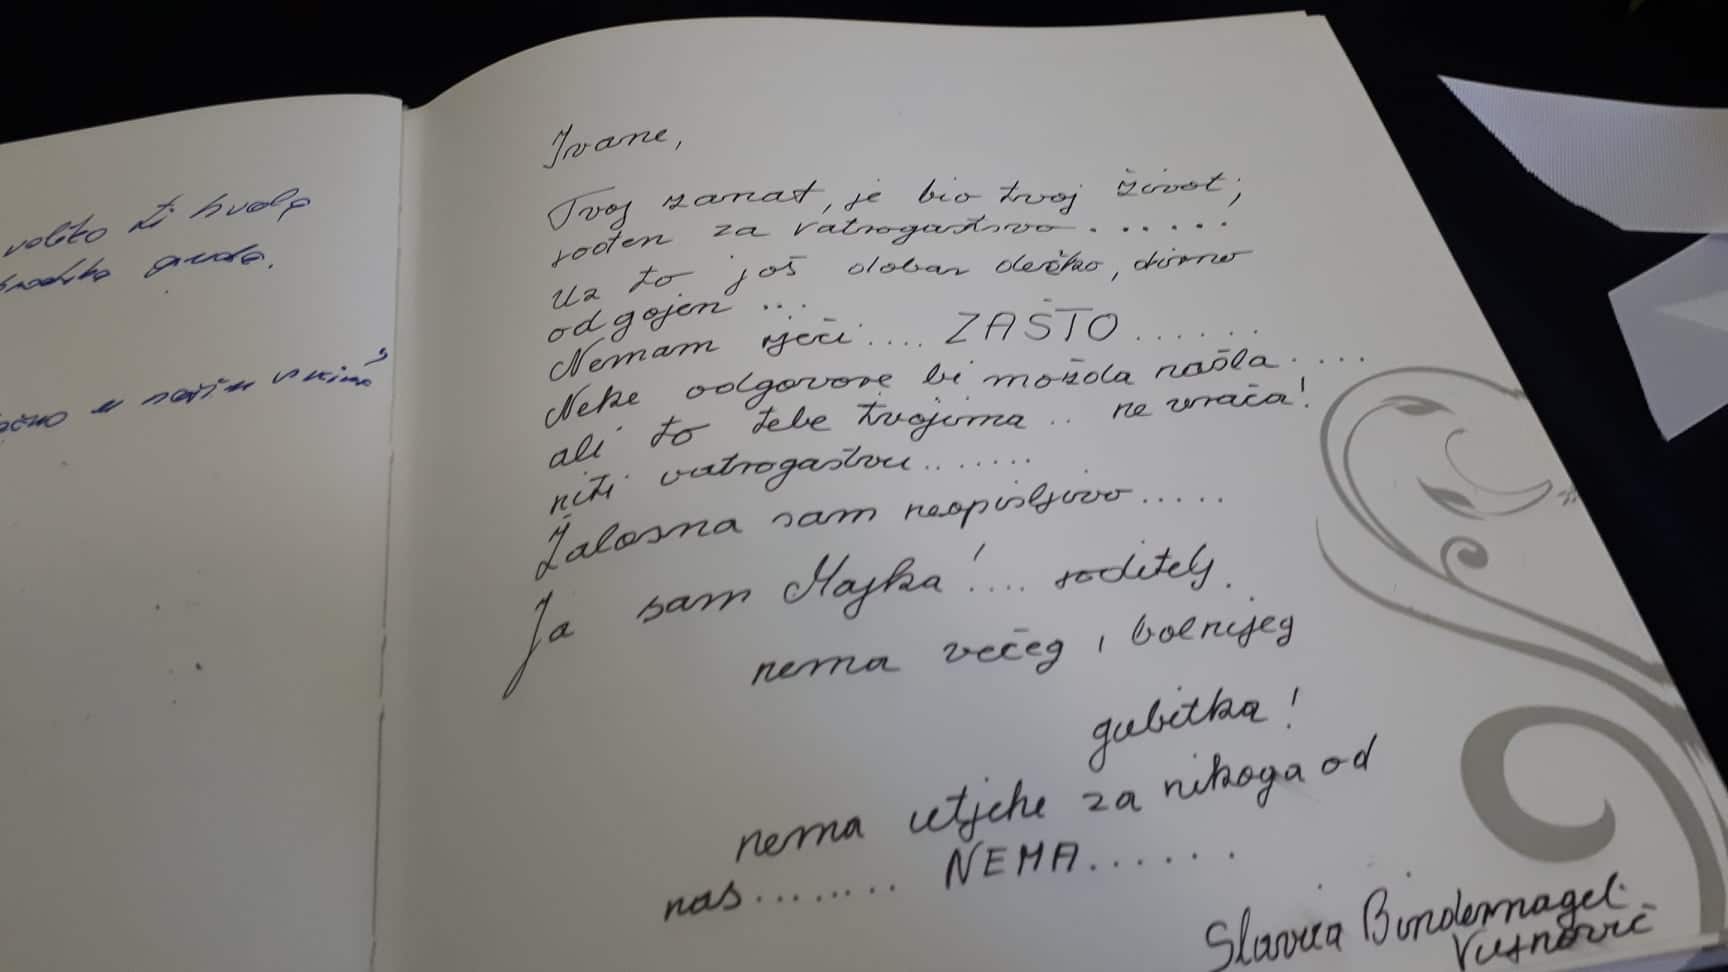 veliko ti hvala
u našim
Ivane,
Tvoj zanat, je bio tvoj život;
rođen za vatrogastvo......
Uz to još dobar dečko, divno
odgojen ...
Nemam rječi .... ZAŠTO ......
Neke odgovore bi možda našla ....
ali to tebe tvojima .. ne vraća!
niti vatrogastvu .......
Žalosna sam neopisljivo .....
Ja sam Majka! .... roditelj.
nema većeg i bolnijeg
gubitka!
nema utjehe za nikoga od
nas ........ NEMA ......
Slavica Bindernagel
Vujnović